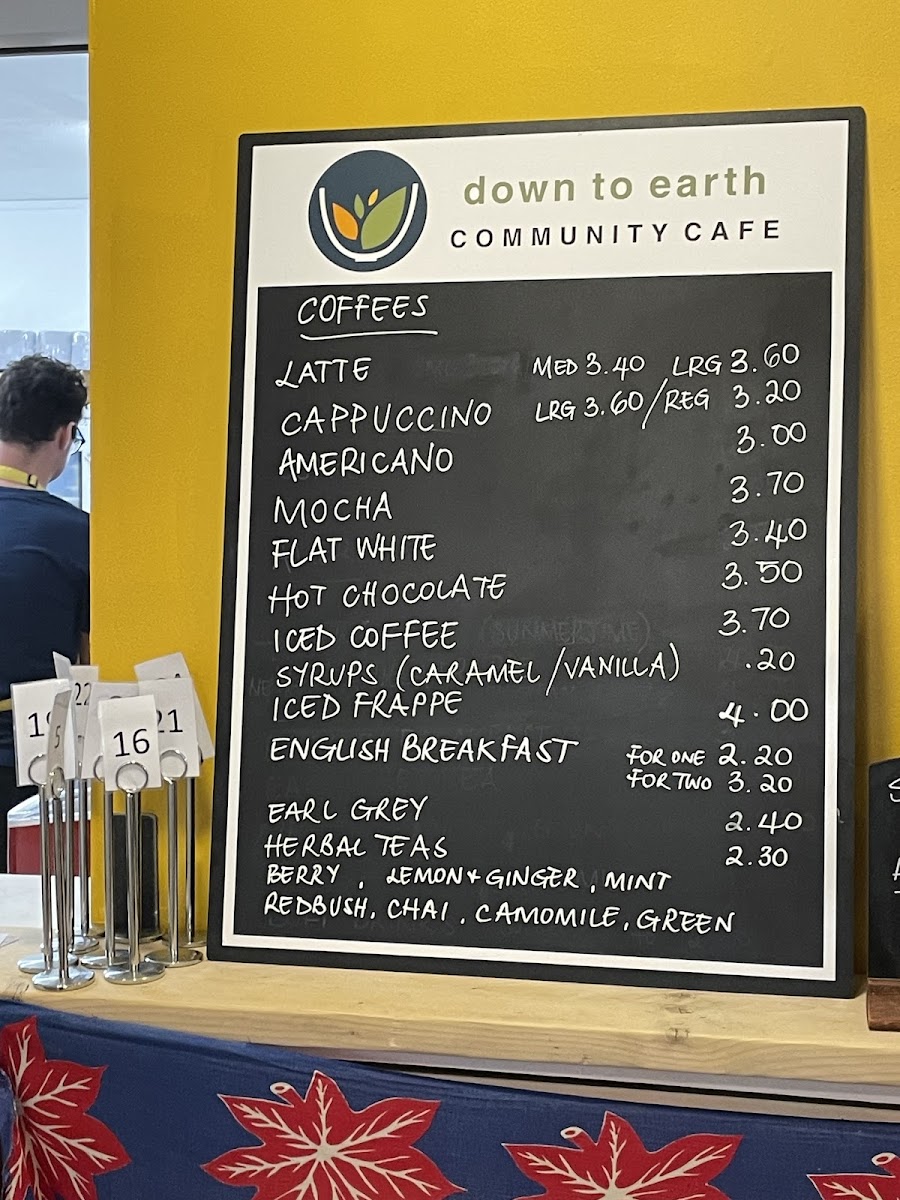 down to earth
COMMUNITY CAFE
COFFEES
LATTE MED 3.40 LRG 3.60
CAPPUCCINO LRG 3.60/REG 3.20
AMERICANO 3.00
MOCHA 3.70
FLAT WHITE 3.40
HOT CHOCOLATE 3.50
ICED COFFEE 3.70
SYRUPS (CARAMEL/VANILLA) .20
ICED FRAPPE 4.00
ENGLISH BREAKFAST FOR ONE 2.20
FOR TWO 3.20
EARL GREY 2.40
HERBAL TEAS 2.30
BERRY, LEMON + GINGER, MINT
REDBUSH, CHAI, CAMOMILE, GREEN
22
5
16
21